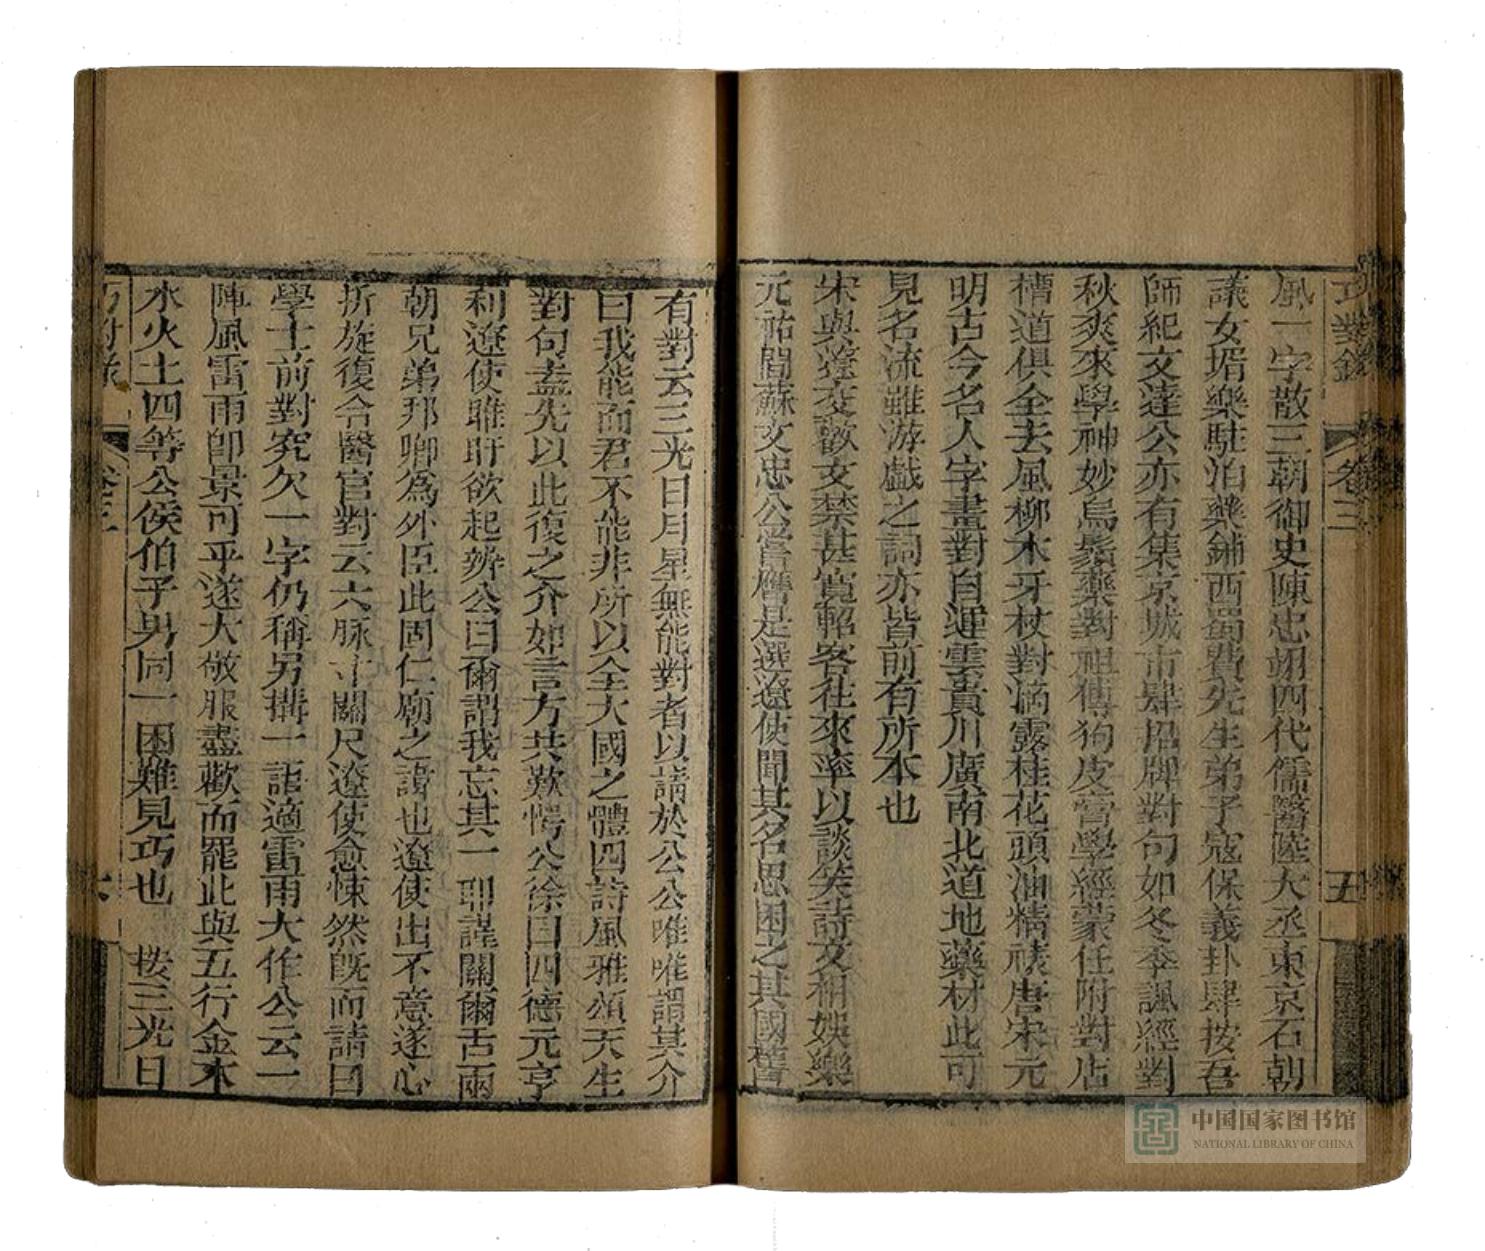 巧對錄 卷三 五
風一字散三朝御史陳忠翊四代儒醫陸大丞東京石朝
議女壻樂駐泊藥鋪西蜀費先生弟子寇保義卦肆按吾
師紀文達公亦有集京城市肆招牌對句如冬季諷經對
秋爽來學神妙烏鬚藥對祖傳狗皮膏學經蒙任附對店
槽道俱全去風柳木牙杖對滴露桂花頭油精裱唐宋元
明古今名人字畫對自運雲貴川廣南北道地藥材此可
見名流雖游戲之詞亦皆前有所本也
宋與遼交歡文禁甚寬軺客往來率以談笑詩文相娛樂
元祐間蘇文忠公嘗膺是選遼使聞其名思困之其國舊
有對云三光日月星無能對者以請於公公唯唯謂其介
曰我能而君不能非所以全大國之體四詩風雅頌天生
對句盍先以此復之介如言方共歎愕公徐曰四德元亨
利遼使睢盱欲起辨公曰爾謂我忘其一耶謹閟爾舌兩
朝兄弟邦卿為外臣此固仁廟之諱也遼使出不意遂心
折旋復令醫官對云六脉寸關尺遼使愈悚然旣而請曰
學士前對究欠一字仍稱另搆一語適雷雨大作公云一
陣風雷雨卽景可乎遂大敬服盡歡而罷此與五行金木
水火土四等公侯伯子男同一困難見巧也 按三光日
巧對錄 卷三 六
中国国家图书馆
NATIONAL LIBRARY OF CHINA